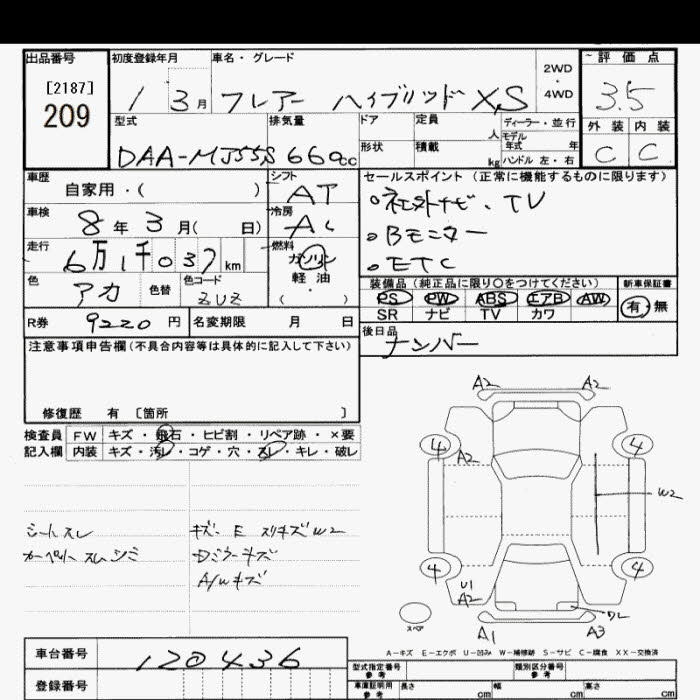 出品番号
[2187]
209
初度登録年月
1 3月
車名・グレード
フレアー ハイブリッド XS
2WD
・
4WD
評価点
3.5
外装 内装
C C
型式
DAA-MJ55S
排気量
660cc
ドア
形状
定員
人
積載
kg
ディーラー・並行
モデル
年式 年
ハンドル 左・右
車歴
自家用・( )
シフト
AT
車検
8年3月( 日)
冷房
AC
走行
6万1千037km
燃料
ガソリン
軽油
・
( )
色
アカ
色替
色コード
R券 9220円
名変期限 月 日
セールスポイント (正常に機能するものに限ります)
○社外ナビ、TV
○Bモニター
○ETC
装備品 (純正品に限り○をつけてください)
PS PW ABS エアB AW
SR ナビ TV カワ
新車保証書
有・無
後日品
ナンバー
注意事項申告欄(不具合内容等は具体的に記入して下さい)
修復歴 有 〔箇所 〕
検査員
記入欄
FW キズ・飛石・ヒビ割・リペア跡・×要
内装 キズ・汚レ・コゲ・穴・スレ・キレ・破レ
シートスレ
カーペットスレシミ
キズ、E スリキズW2
Dミラーキズ
A/Wキズ
A2 A2
4 A2 4
W2
4 4
U1
A2
ワレ
スペア
A1 A3
A－キズ E－エクボ U－凹み W－補修跡 S－サビ C－腐食 XX－交換済
車台番号
120436
登録番号
型式指定番号
参考
類別区分番号
参考
車庫証明用
参考
長さ cm
幅 cm
高さ cm